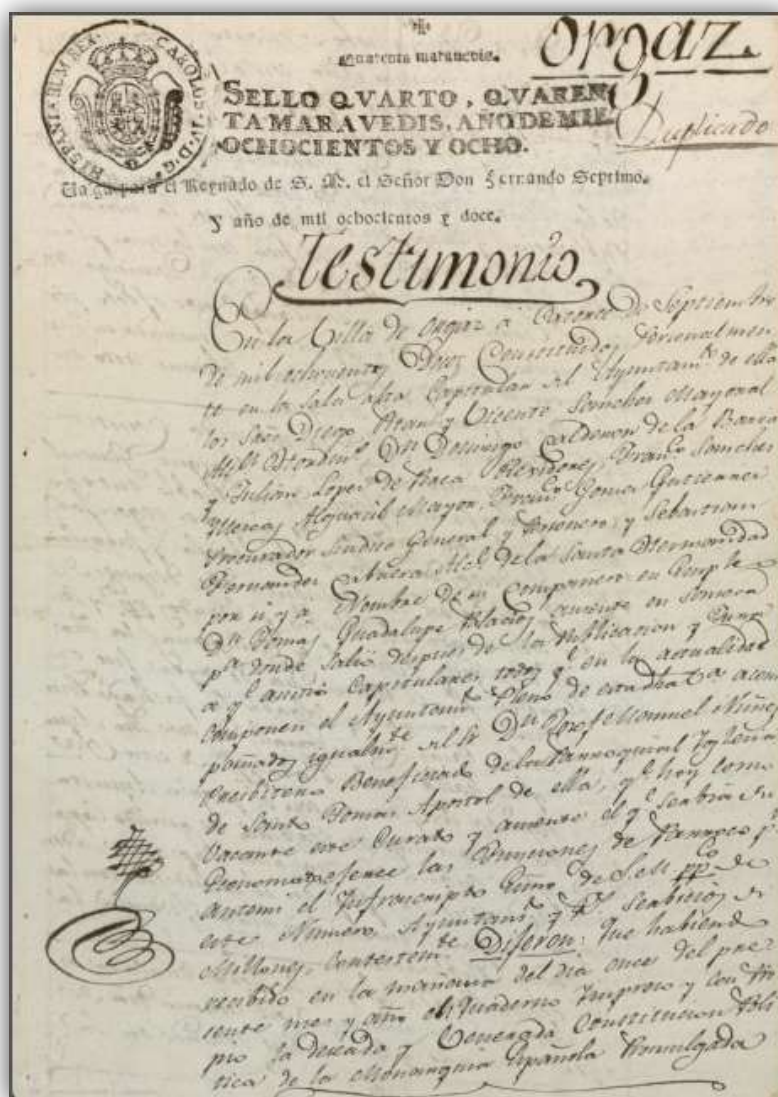 HISPANIARUM REX. CAROLUS IV D. G.
Quarenta maravedis.
Orgaz
SELLO QVARTO, QVAREN
TA MARAVEDIS, AÑO DE MIL
OCHOCIENTOS Y OCHO.
Duplicado
Valga para el Reynado de S. M. el Señor Don Fernando Septimo.
Y año de mil ochocientos y doce.
Testimonio
En la Villa de Orgaz a Catorce de Septiembre
de mil ochocientos Doce Constituidos Personalmen
te en la Sala alta Capitular del Ayuntam.to de ella
los Sres Diego y Vicente Sanchez Mayoral
D.n Domingo Calderon de la Barca
y Julian Lopez de Regidores, Fran.co Sanchez
Alguacil Mayor, Fran.co Gomez Gutierrez
Procurador Sindico General y Personero, y Sebastian
Fernandez Cabrera de la Santa Hermandad
por si y a Nombre de su Compañero en Empleo
D.n Tomas Guadalupe Palacios ausente en Sonseca
p.a donde salio despues de la Publicacion y
a q.e asistio Capitulares todos q.e en la actualidad
componen el Ayuntam.to Pleno de esta acom
pañados igualm.te del Sr D.n Josef Manuel Nuñez
Presbitero Beneficiado de la Parroquial Yglesia
de Santo Tomas Apostol de ella, q.e hoy como
vacante este Curato y ausente el q.e servia su
Economato, ejerce las Funciones de Parroco p.r
antemi el Infrascripto de S. M. pp.co de
este Numero Ayuntam.to y Servicios de
Millones, Dijeron: que habiendo
recibido en la mañana del dia once del pre-
sente mes y año el Quaderno Impreso y
pio la deseada y Venerada Constitucion Poli
tica de la Monarquia Española Promulgada